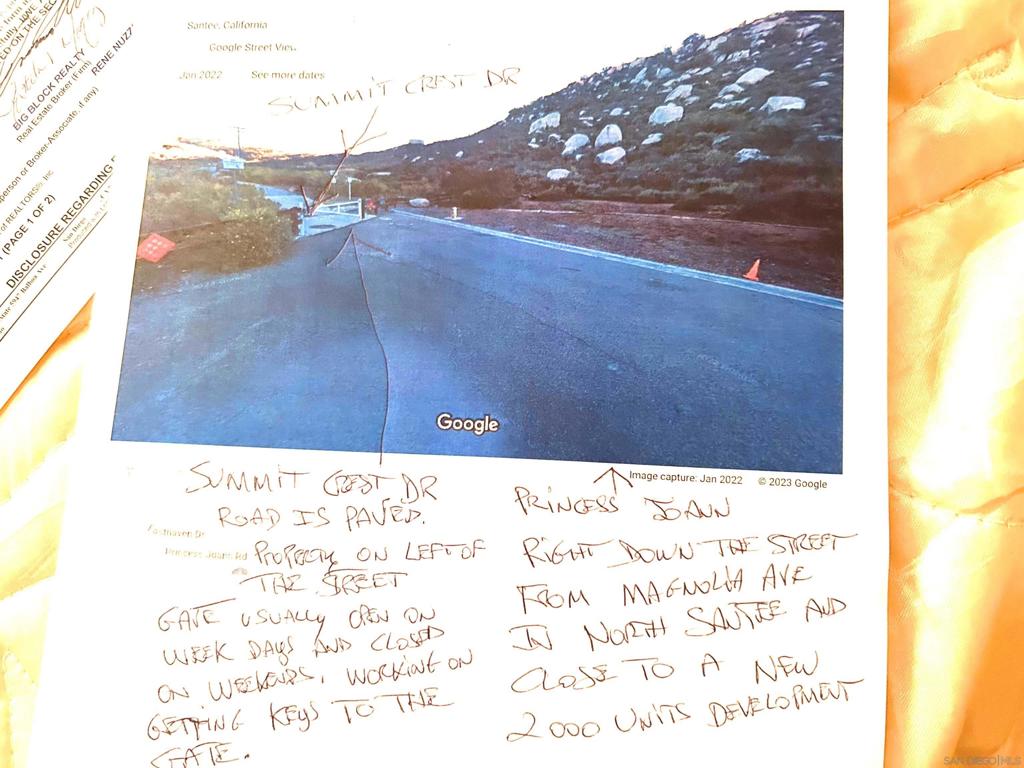 Santee, California
Google Street View
Jan 2022 See more dates
SUMMIT CREST DR
Google
Image capture: Jan 2022 © 2023 Google
SUMMIT CREST DR
ROAD IS PAVED.
Princess Joann Rd
PROPERTY ON LEFT OF
THE STREET
GATE USUALLY OPEN ON
WEEK DAYS AND CLOSED
ON WEEKENDS, WORKING ON
GETTING KEYS TO THE
GATE.
PRINCESS JOANN
RIGHT DOWN THE STREET
FROM MAGNOLIA AVE
IN NORTH SANTEE AND
CLOSE TO A NEW
2000 UNITS DEVELOPMENT
BIG BLOCK REALTY
Real Estate Broker (Firm)
RENE NUZZ
person or Broker-Associate, if any)
of REALTORS®, Inc.
(PAGE 1 OF 2)
DISCLOSURE REGARDING
San Diego
SAN DIEGO MLS